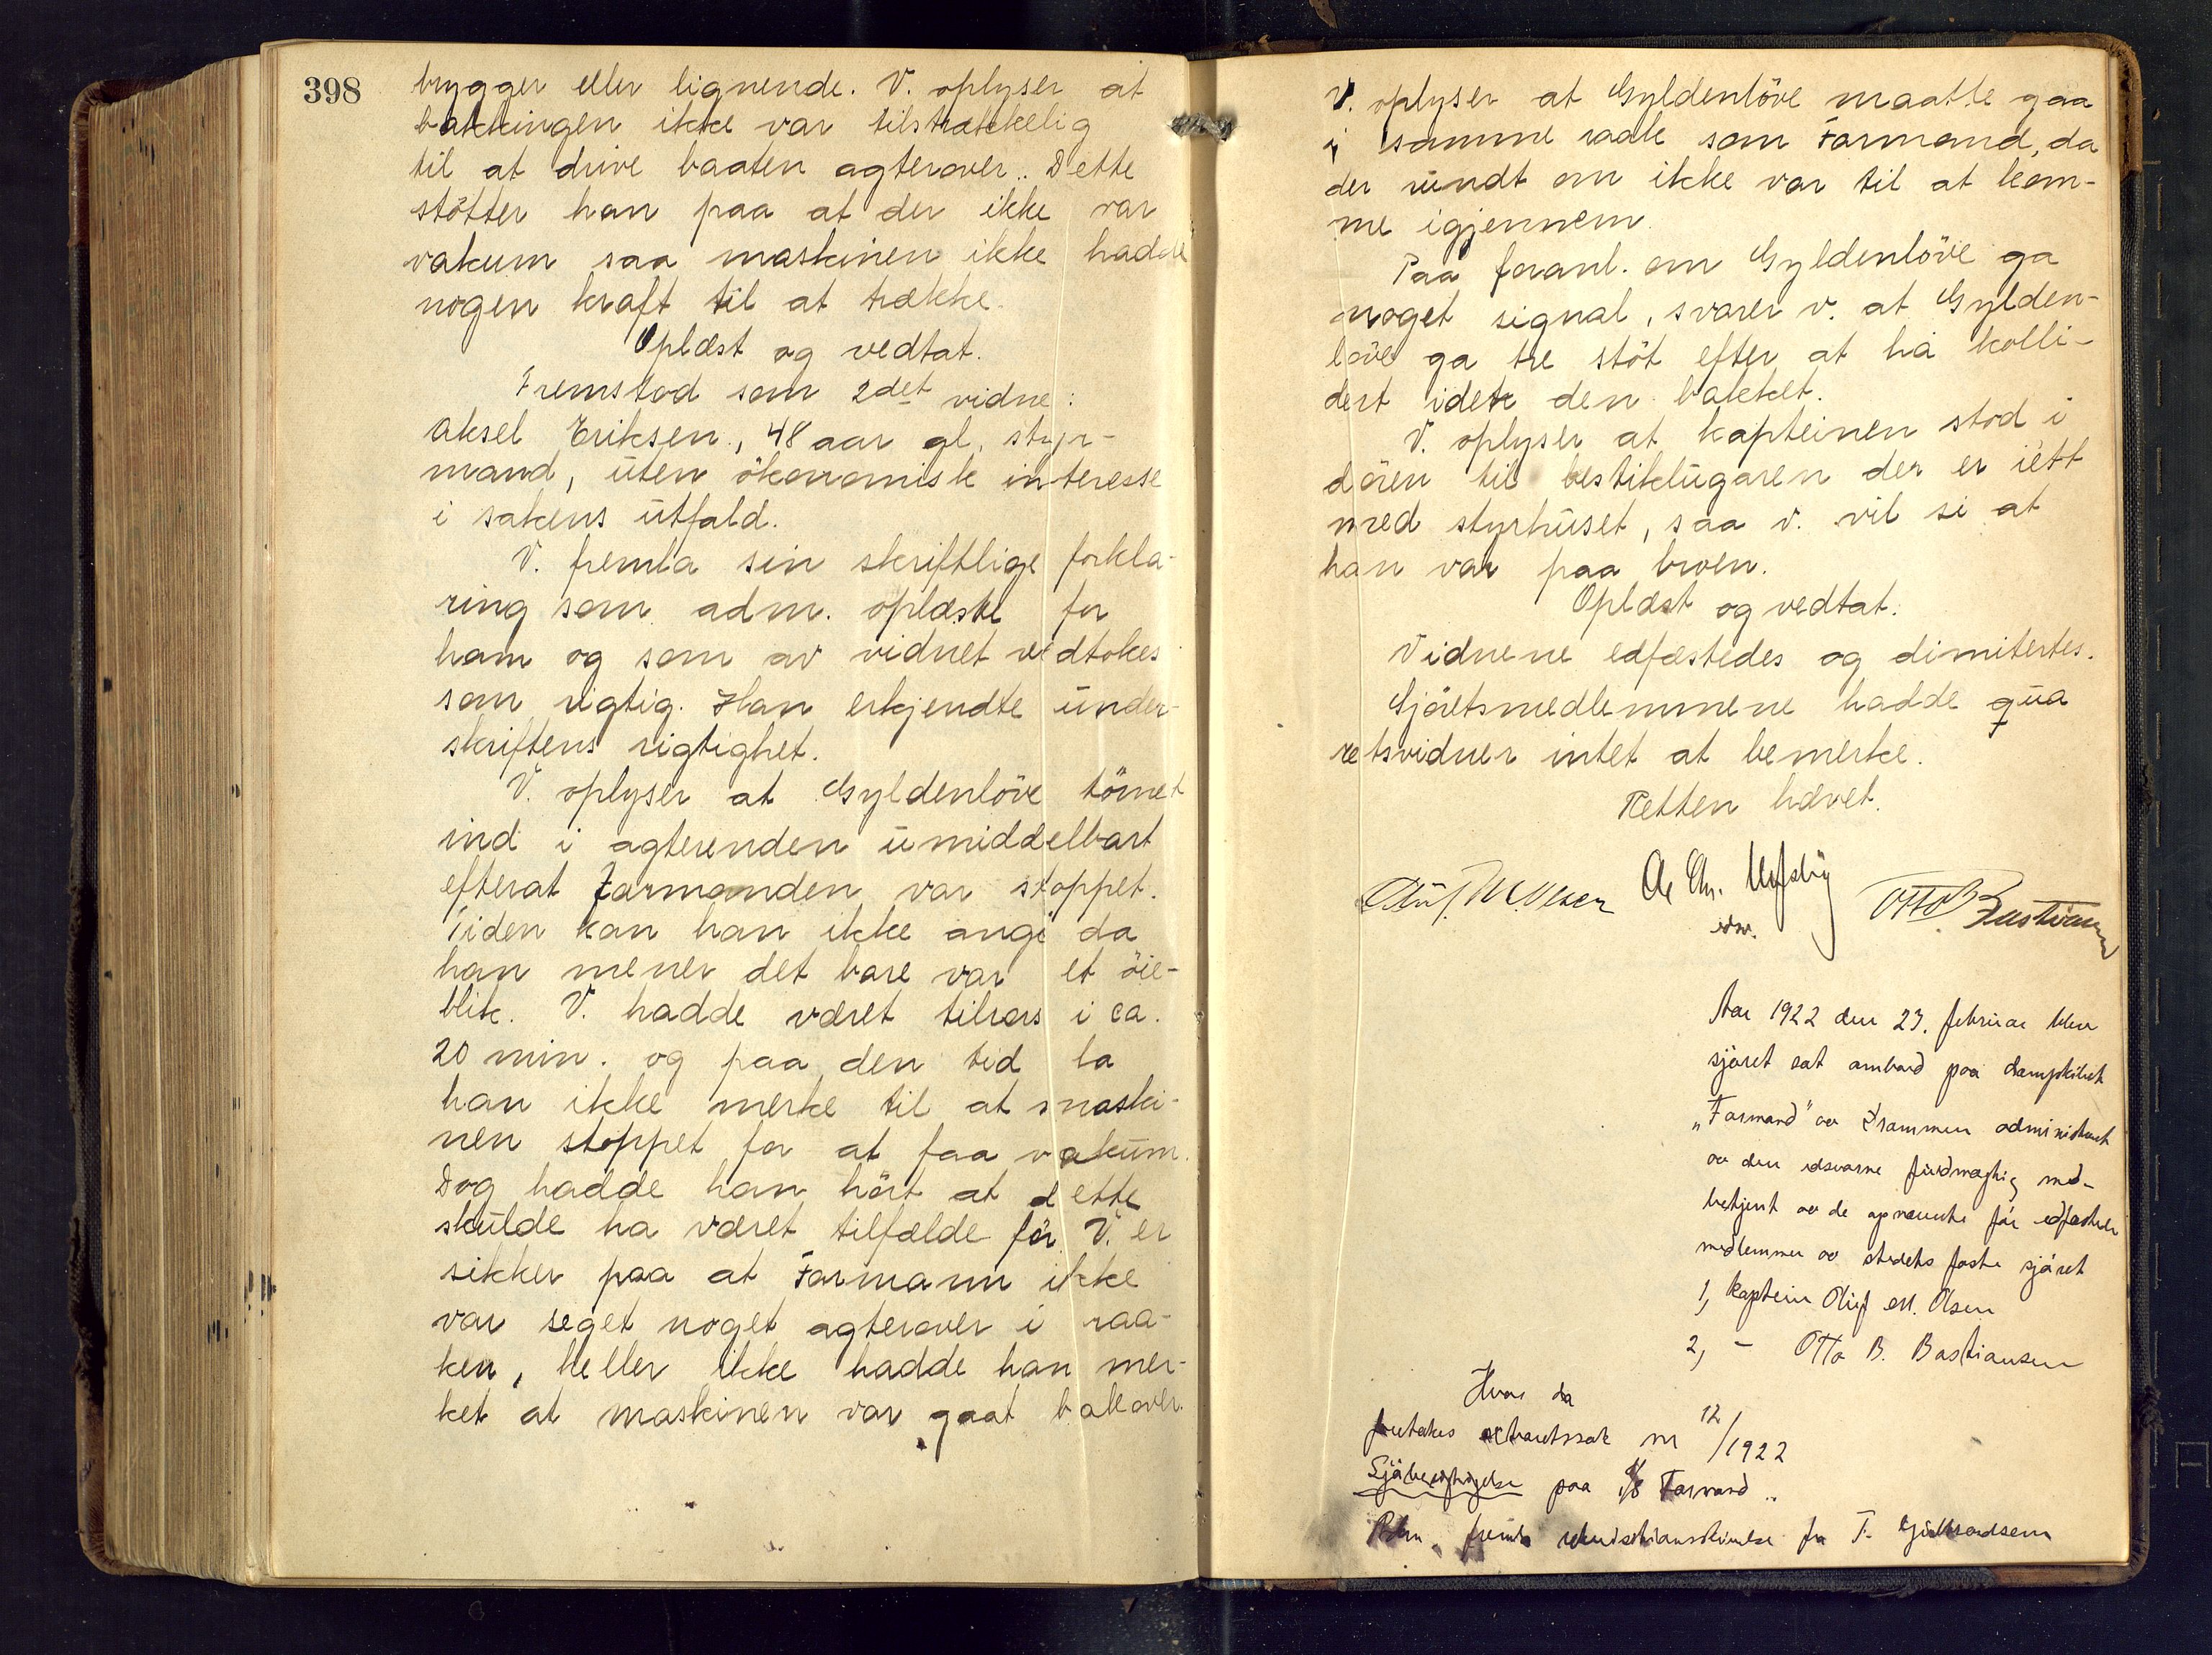 398
brygger eller lignende. V. oplyser at
bakkingen ikke var tilstrækkelig
til at drive baaten agterover. Dette
støtter han paa at der ikke var
vakum saa maskinen ikke hadde
nogen kraft til at trække.
Oplæst og vedtat.
Fremstod som 2det vidne:
Aksel Eriksen, 48 aar gl. styr-
mand, uten økonomisk interesse
i sakens utfald.
V. fremla sin skriftlige forkla-
ring som adm. oplæste for
ham og som av vidnet vedtokes
som rigtig. Han erkjendte under-
skriftens rigtighet.
V. oplyser at Gyldenløve törnet
ind i agterenden umiddelbart
efterat Farmanden var stoppet.
Tiden kan han ikke angi da
han mener det bare var et öie-
blik. V. hadde været tilrors i ca.
20 min. og paa den tid la
han ikke merke til at maski-
nen stoppet for at faa vakum.
Dog hadde han hört at dette
skulde ha været tilfælde för. V. er
sikker paa at Farmann ikke
var seget noget agterover i raa-
ken, heller ikke hadde han mer-
ket at maskinen var gaat bakover.
V. oplyser at Gyldenlöve maatte gaa
i samme raak som Farmand, da
der rundt om ikke var til at kom-
me igjennem.
Paa foranl. om Gyldenlöve ga
noget signal, svarer v. at Gylden-
löve ga tre stöt efter at ha kolli-
dert idet den bakket.
V. oplyser at kapteinen stod i
dören til bestiklugaren der er i ett
med styrhuset, saa v. vil si at
han var paa broen.
Oplæst og vedtat.
Vidnene edfæstedes og dimitertes.
Sjöretsmedlemmene hadde qua
retsvidner intet at bemerke.
Retten hævet.
Oluf M. Olsen
Otto B Bastiansen
Aar 1922 den 23. februar blev
sjöret sat ombord paa dampskibet
"Farmand" av Drammen administrert
av den edsvorne fuldmægtig med-
betjent av de opnævnte för edfæstede
medlemmer av stedets faste sjöret
1, kaptein Oluf M. Olsen
2, - Otto B. Bastiansen
Hvor da
foretokes extraretssak nr 12/1922
Sjöbesigtigelse paa S/S Farmand.
fremla rekvisitionsskrivelse fra T. Gulbrandsen